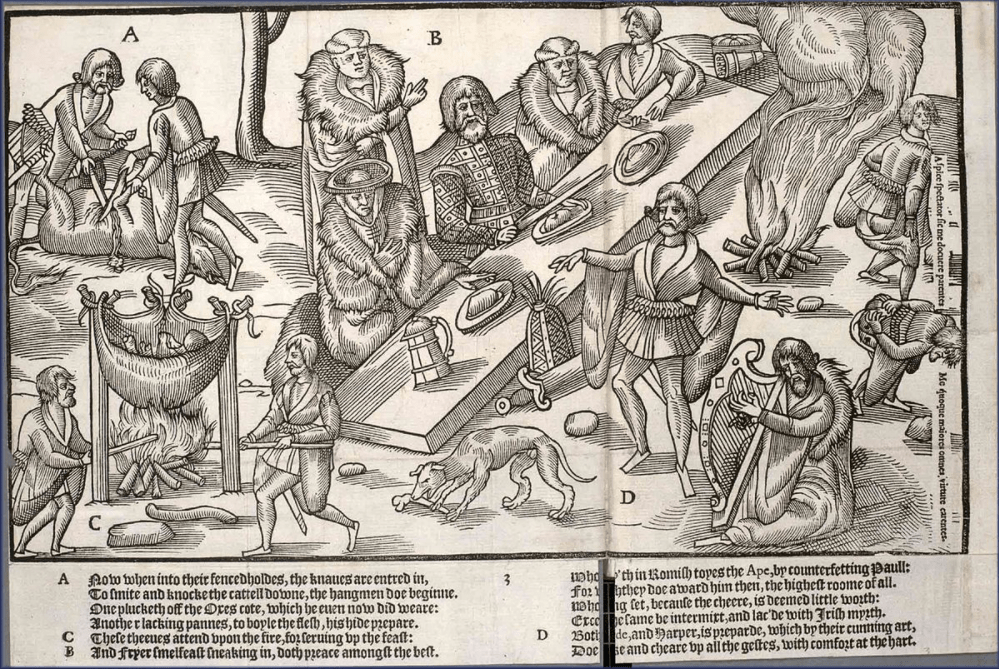 A
B
Aspice spectator sic me docuere parentes
Me quoque maiores omnes, virtute carentes.
C
D
A Now when into their fencedholdes, the knaues are entred in,
To smite and knocke the cattell downe, the hangmen doe beginne.
One plucketh off the Oxes cote, which he euen now did weare:
Another lacking pannes, to boyle the flesh, his hide prepare.
C These theeues attend vpon the fire, for seruing vp the feast:
B And Fryer smelfeast sneaking in, doth preace amongst the best.
3
in Romish toyes the Ape, by counterfetting Paull:
For they doe award him then, the highest roome of all.
set, because the cheere, is deemed little worth:
same be intermixt, and lac'de with Irish myrth.
D Both and Harper, is preparde, which by their cunning art,
Doe and cheare vp all the gestes, with comfort at the hart.